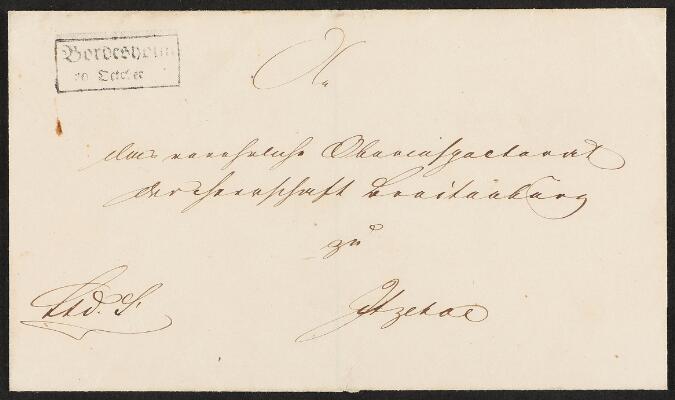 Bordesholm
20 October
An
das verehrliche Oberinspectorat
der Herrschaft Breitenburg
zu
Itzehoe